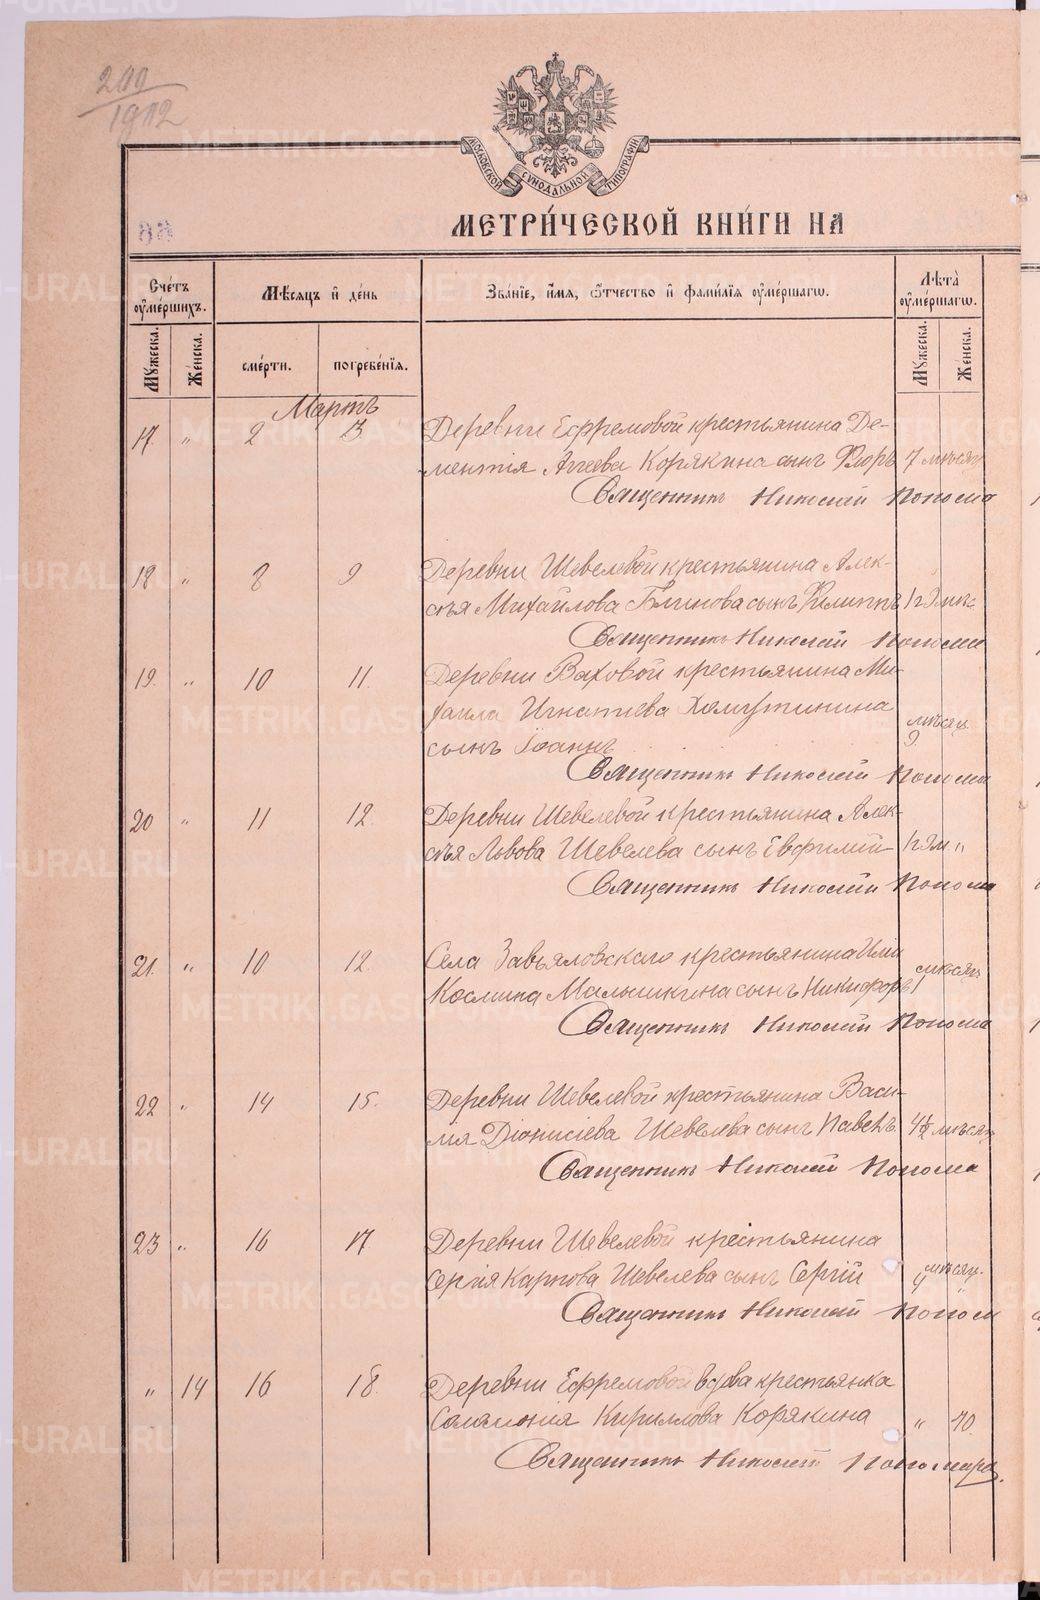 200
1912
МОСКОВСКОЙ СѴНОДАЛЬНОЙ ТИПОГРАФІИ
МЕТРИ́ЧЕСКОЙ КНИ́ГИ НА
Сче́тъ оу҆ме́ршихъ.
Мѣ́сяцъ и҆ де́нь
Зва́нїе, и҆́мя, ѻ҆́тчество и҆ фами́лїя оу҆ме́ршагѡ.
Лѣ́та оу҆ме́ршагѡ.
Мꙋ́жеска.
Же́нска.
сме́рти.
погребе́нїя.
Мꙋ́жеска.
Же́нска.
Мартъ
17 " 2 3 Деревни Ефремовой крестьянина Де-
ментія Корякина сынъ Флоръ 7 мѣсяц
Священникъ Николай Понома
18 " 8 9 Деревни Шевелевой крестьянина Алек-
сѣя Михайлова Блинова сынъ Филиппъ
Священникъ Николай Понома
19. " 10 11. Деревни Ваховой крестьянина Ми-
хаила Игнатіева Хомутинина
сынъ Іоаннъ 9 мѣсяц.
Священникъ Николай Понома
20 " 11 12. Деревни Шевелевой крестьянина Алек-
сѣя Львова Шевелева сынъ Евфимій
Священникъ Николай Понома
21. " 10 12. Села Завьяловскаго крестьянина Иліи
Космина Малышкина сынъ Никифоръ 1 мѣсяцъ
Священникъ Николай Понома
22 " 14 15. Деревни Шевелевой крестьянина Васи-
лія Діонисіева Шевелева сынъ Павелъ 4½ мѣсяц
Священникъ Николай Понома
23 " 16 17 Деревни Шевелевой крестьянина
Сергія Карпова Шевелева сынъ Сергій мѣсяц.
Священникъ Николай Поном
" 14 16 18. Деревни Ефремовой вдова крестьянка
Соломонія Кириллова Корякина " 70.
Священникъ Николай Пономарев.